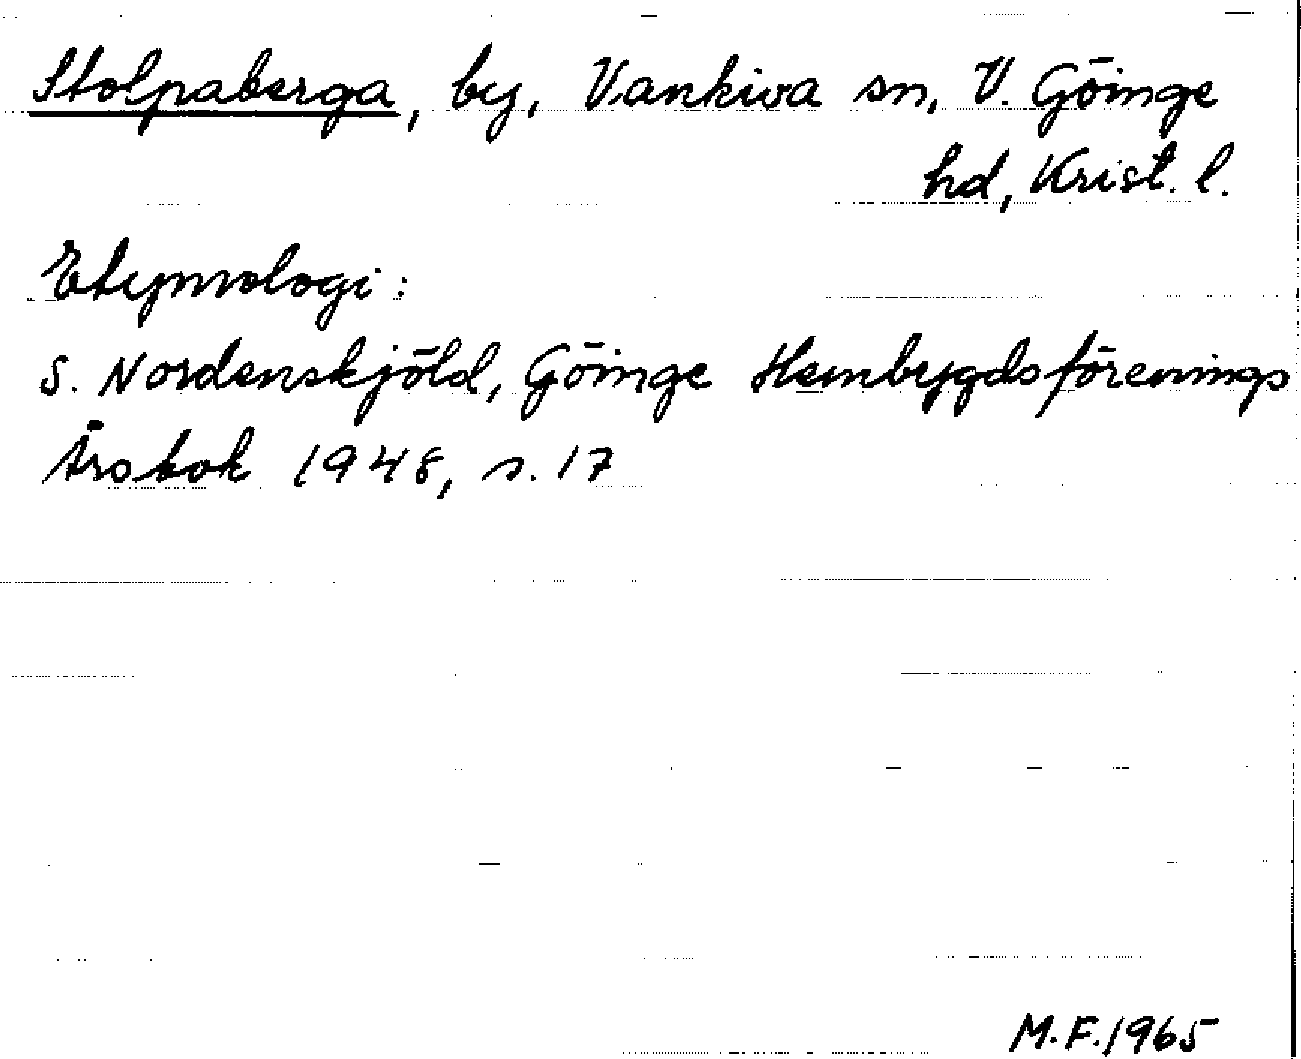 Stolpaberga, by, Vankiva sn, V. Göinge
hd, Krist. l.
Etymologi:
S. Nordenskjöld, Göinge Hembygdsförenings
Årsbok 1948, s. 17
M.F. 1965